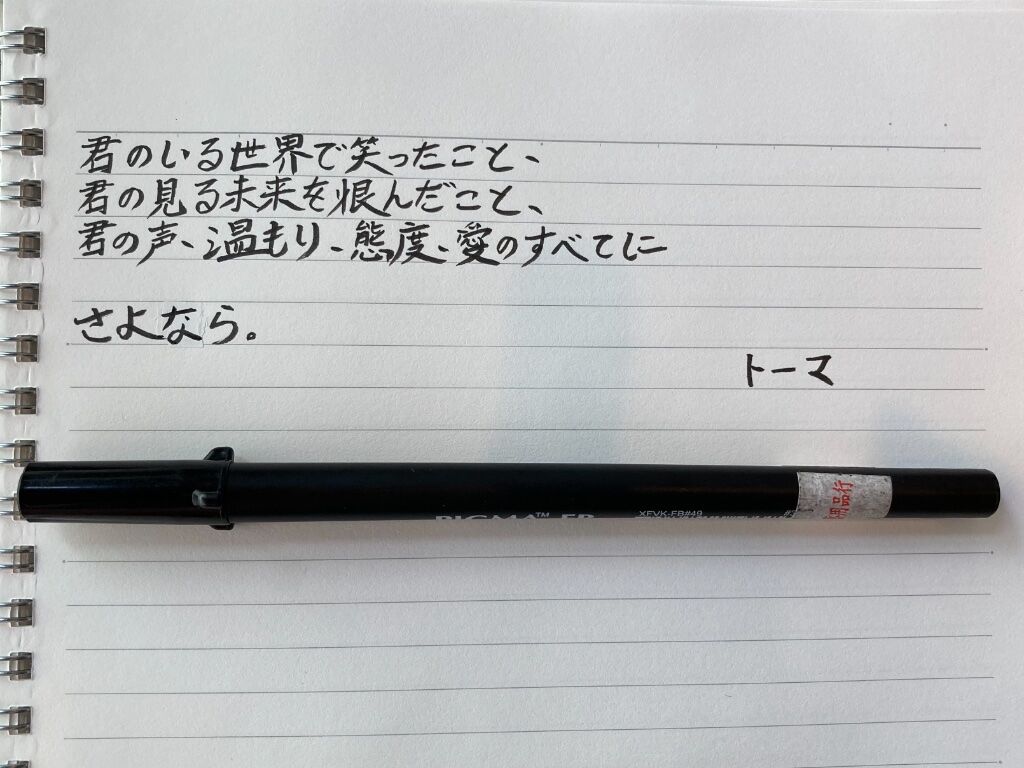 君のいる世界で笑ったこと、
君の見る未来を恨んだこと、
君の声、温もり、態度、愛のすべてに
さよなら。
トーマ
PIGMA™ FB
XFVK-FB#49